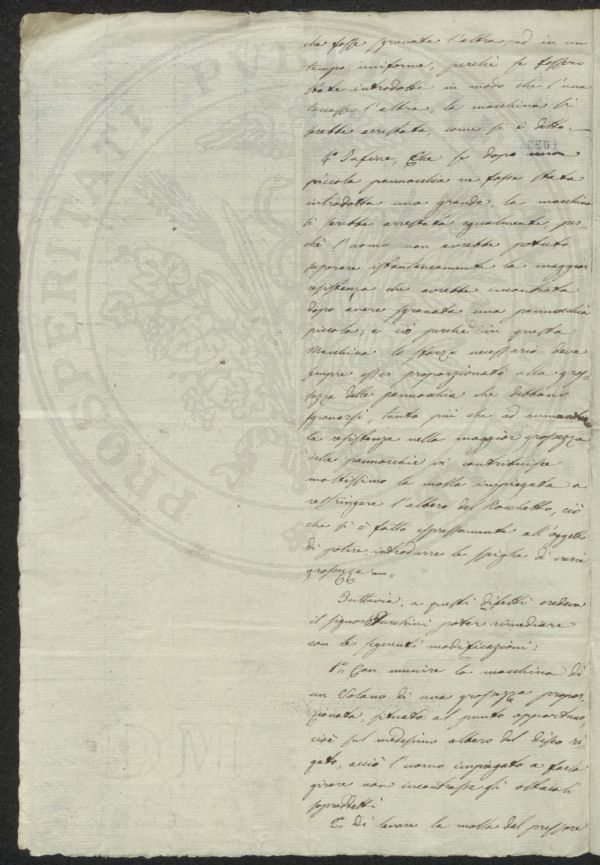 che fosse sgranata l'altra, ed in un
tempo uniforme, perchè se fossero
state introdotte in modo che l'una
toccasse l'altra, la macchina si
sarebbe arrestata, come si è detto. —
4.° Infine, Che se dopo una
piccola pannocchia ne fosse stata
introdotta una grande, la macchina
si sarebbe arrestata egualmente, per-
chè l'uomo non avrebbe potuto
superare istantaneamente la maggior
resistenza che avrebbe incontrata
dopo avere sgranata una pannocchia
piccola, e ciò perchè in questa
Macchina la forza necessaria deve
sempre esser proporzionata alla gros-
sezza delle pannocchie che debbano
sgranarsi, tanto più che ad aumentar
la resistenza nella maggior grossezza
delle pannocchie vi contribuisce
moltissimo la molla impiegata a
restringere l'albero del Rocchetto, ciò
che si è fatto espressamente all'oggetto
di potere introdurre le spighe di varia
grossezze —.
Tuttavia, a questi difetti credeva
il signor Turchini poter rimediare
con le seguenti modificazioni:
1.° Con munire la macchina di
un Volano di una grossezza propor-
zionata, situato al punto opportuno,
cioè sul medesimo albero del disco ri-
gato, acciò l'uomo impiegato a farla
girare non incontrasse gli ostacoli
sopraddetti
2.° Di levare la molla del pressore